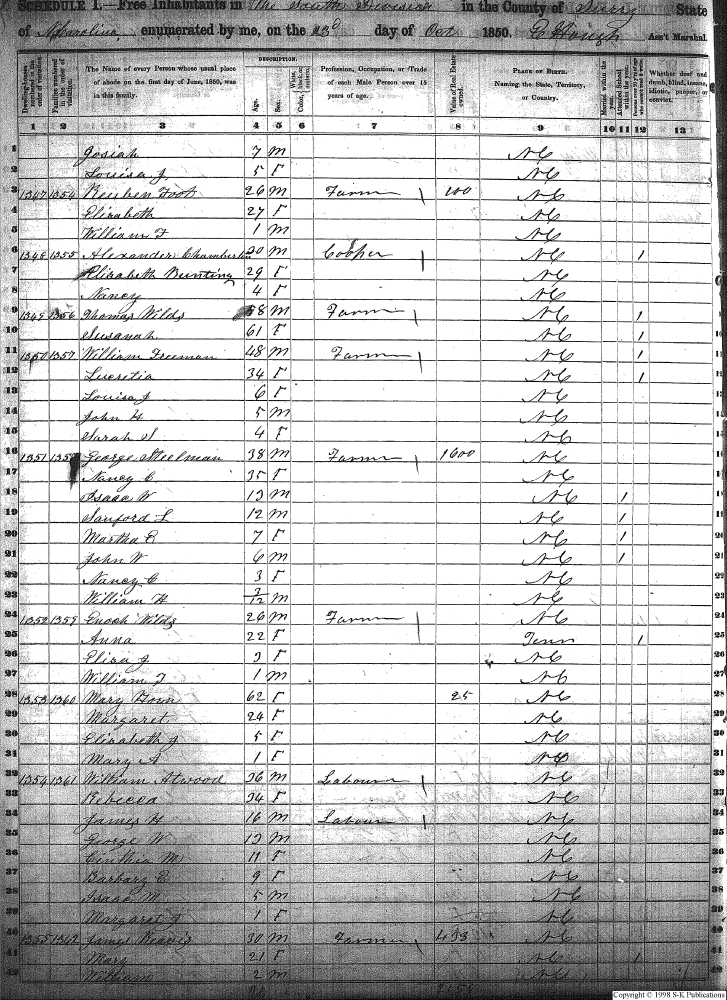 SCHEDULE I.—Free Inhabitants in The South Division in the County of Surry State
of N Carolina enumerated by me, on the 23d day of Oct 1850. Ass't Marshal.
DESCRIPTION.
The Name of every Person whose usual place of abode on the first day of June, 1850, was in this family.
Age.
Sex.
Profession, Occupation, or Trade of each Male Person over 15 years of age.
Value of Real Estate owned.
PLACE OF BIRTH. Naming the State, Territory, or Country.
Married within the year.
Attended School within the year.
Whether deaf and dumb, blind, insane, idiotic, pauper, or convict.
1 2 3 4 5 6 7 8 9 10 11 12 13
1 Josiah 7 M NC
2 Louisa J 5 F NC
3 1347 1354 Reuben 26 M Farmer 100 NC
4 Elizabeth 27 F NC
5 William F 1 M NC
6 1348 1355 Alexander Chamberlin 20 M Cooper NC 1
7 Elizabeth Bunting 29 F NC
8 Nancy 4 F NC
9 1349 1356 Thomas Wilds 58 M Farmer NC 1
10 Susanah 61 F NC 1
11 1350 1357 William Freeman 48 M Farmer NC 1
12 Lucretia 34 F NC 1
13 Louisa J 6 F NC
14 John H 5 M NC
15 Sarah S 4 F NC
16 1351 George Steelman 38 M Farmer 1600 NC
17 Nancy C 35 F NC
18 Isaac W 13 M NC 1
19 Sanford L 12 M NC 1
20 Martha E 7 F NC 1
21 John W 6 M NC 1
22 Nancy C 3 F NC
23 William H 3/12 M NC
24 1352 1359 Enoch Wilds 26 M Farmer NC
25 Anna 22 F Tenn 1
26 Eliza J 3 F NC
27 William F 1 M NC
28 1353 1360 Mary 62 F 25 NC
29 Margaret 24 F NC
30 Elizabeth J 5 F NC
31 Mary A 1 F NC
32 1354 1361 William Atwood 36 M Labourer NC
33 Rebecca 34 F NC
34 James H 16 M Labour NC
35 George W 13 M NC
36 Cinthia M 11 F NC
37 Barbary E 9 F NC
38 Isaac M 5 M NC
39 Margaret J 1 F NC
40 1355 1362 James Reavis 30 M Farmer 433 NC
41 Mary 21 F NC 1
42 William 2 M NC
Copyright © 1998 S-K Publications